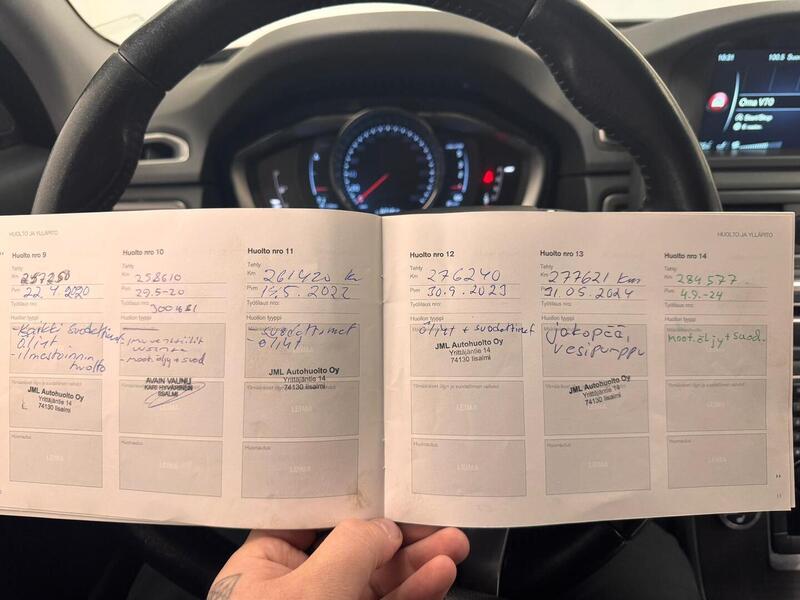 10:21
100.5 Suom
Oma V70
Start/Stop
HUOLTO JA YLLÄPITO
HUOLTO JA YLLÄPITO
Huolto nro 9
Tehty
Km 257250
Pvm 22.4 2020
Työtilaus nro:
Huollon tyyppi
- Kaikki suodattimet
öljyt
- ilmastoinnin
huolto
JML Autohuolto Oy
Yrittäjäntie 14
74130 Iisalmi
Huomautus
Huolto nro 10
Tehty
Km 258610
Pvm 29.5-20
Työtilaus nro:
Huollon tyyppi
- moot.öljy + suod
AVAIN VAUNU
KARI HYVÄRINEN
IISALMI
Huomautus
LEIMA
Huolto nro 11
Tehty
Km 261420 km
Pvm 12.5.2022
Työtilaus nro:
Huollon tyyppi
- suodattimet
- öljyt
JML Autohuolto Oy
Yrittäjäntie 14
74130 Iisalmi
LEIMA
Huomautus
LEIMA
Huolto nro 12
Tehty
Km 276240
Pvm 30.9.2023
Työtilaus nro:
Huollon tyyppi
öljyt + suodattimet
JML Autohuolto Oy
Yrittäjäntie 14
74130 Iisalmi
LEIMA
Huomautus
LEIMA
Huolto nro 13
Tehty
Km 277621 km
Pvm 31.05.2024
Työtilaus nro:
Huollon tyyppi
jakopää,
vesipumppu
JML Autohuolto Oy
Yrittäjäntie 14
74130 Iisalmi
Huomautus
LEIMA
Huolto nro 14
Tehty
Km 284577
Pvm 4.9.-24
Työtilaus nro:
moot.öljy + suod.
LEIMA
Huomautus
LEIMA
11